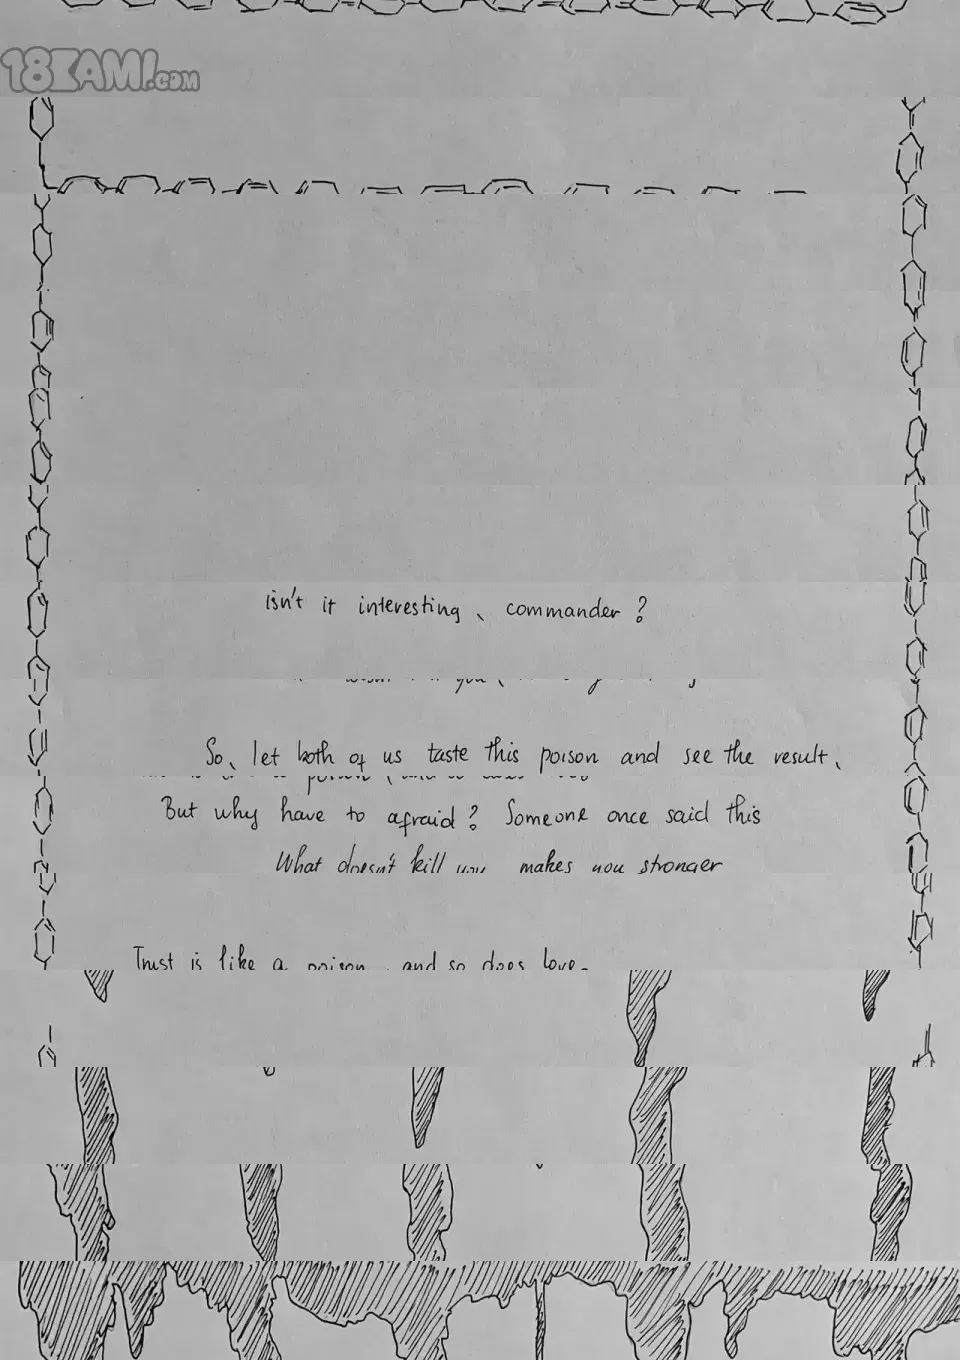 18KAMI.COM
isn't it interesting、 commander ?
you
So、 let both of us taste this poison and see the result、
poison
But why have to afraid ? Someone once said this
What doesn't kill you makes you stronger
Trust is like a poison , and so does love.